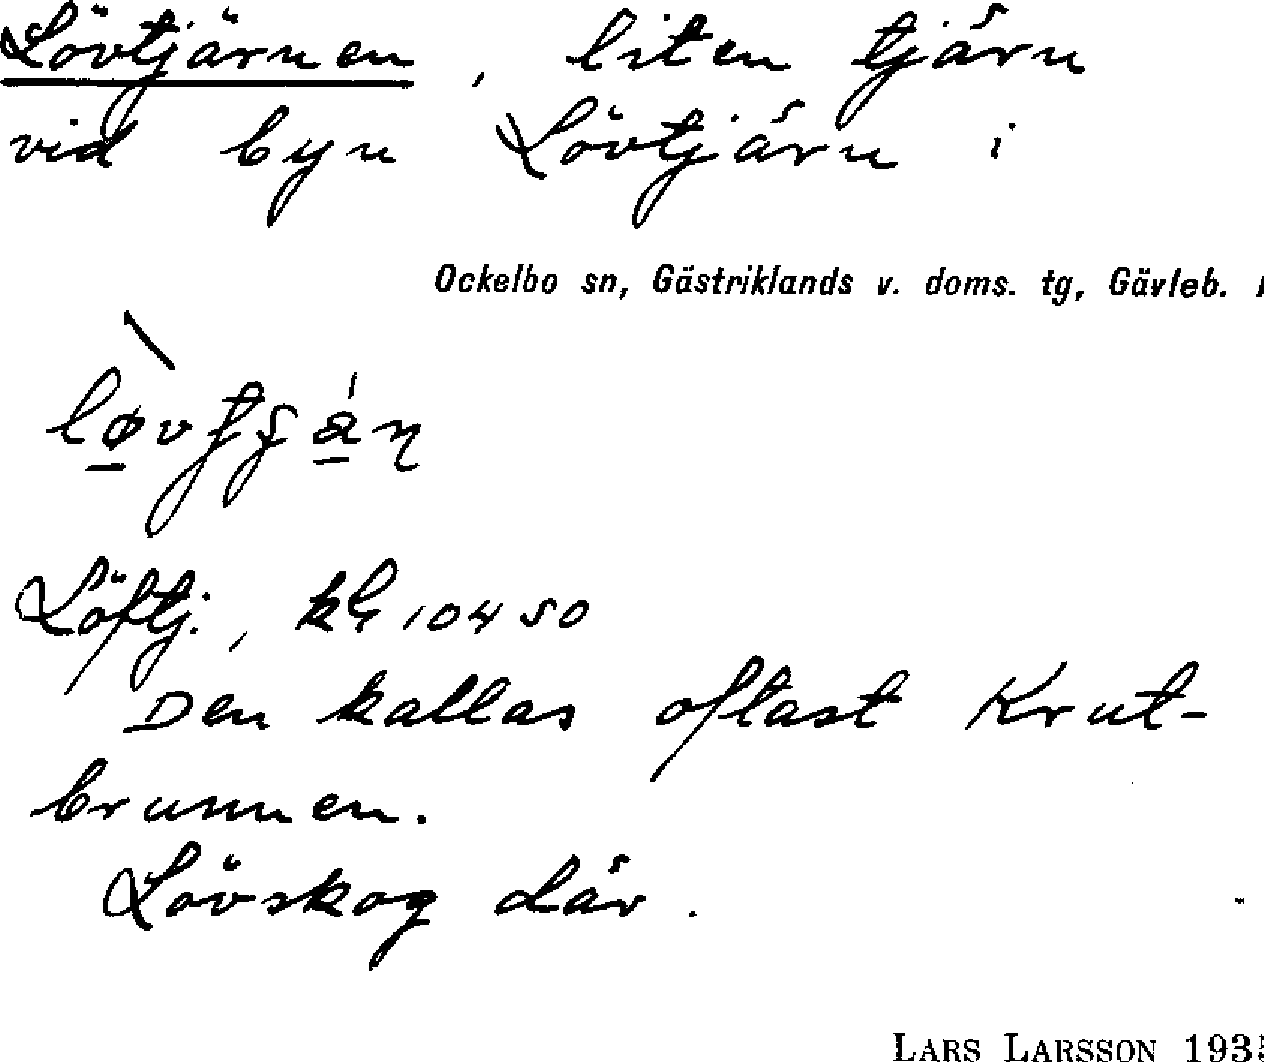 Lövtjärnen, liten tjärn
vid byn Lövtjärn i
Ockelbo sn, Gästriklands v. doms. tg, Gävleb.
Löftj., kG 10450
Den kallas oftast Krut-
brunnen.
Lövskog där.
LARS LARSSON 193